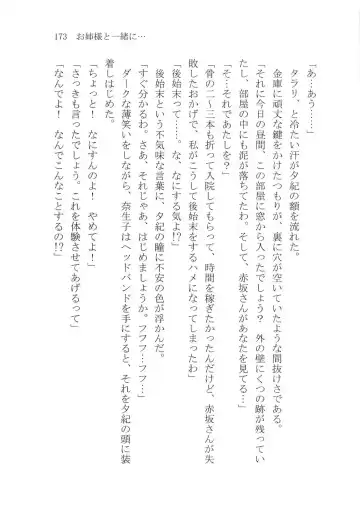 173　お姉様と一緒に…
「あ…あう……」
タラリ、と冷たい汗が夕紀の額を流れた。
金庫に頑丈な鍵をかけたつもりが、裏に穴が空いていたような間抜けさである。
「それに今日の昼間、この部屋に窓から入ったでしょう？　外の壁にくつの跡が残ってい
たし、部屋の中にも泥が落ちてたわ。そして、赤坂さんがあなたを見てる…」
「そ…それであたしを？」
「骨の二～三本も折って入院してもらって、時間を稼ぎたかったんだけど、赤坂さんが失
敗したおかげで、私がこうして後始末をするハメになってしまったわ」
「後始末って……。な、なにする気よ!?」
後始末という不気味な言葉に、夕紀の瞳に不安の色が浮かんだ。
「すぐ分かるわ。さあ、それじゃあ、はじめましょうか。フフフ…フフ…」
ダークな薄笑いをしながら、奈生子はヘッドバンドを手にすると、それを夕紀の頭に装
着しはじめた。
「ちょっと！　なにすんのよ！　やめてよ！」
「さっきも言ったでしょう。これを体験させてあげるって」
「なんでよ！　なんでこんなことするの!?」